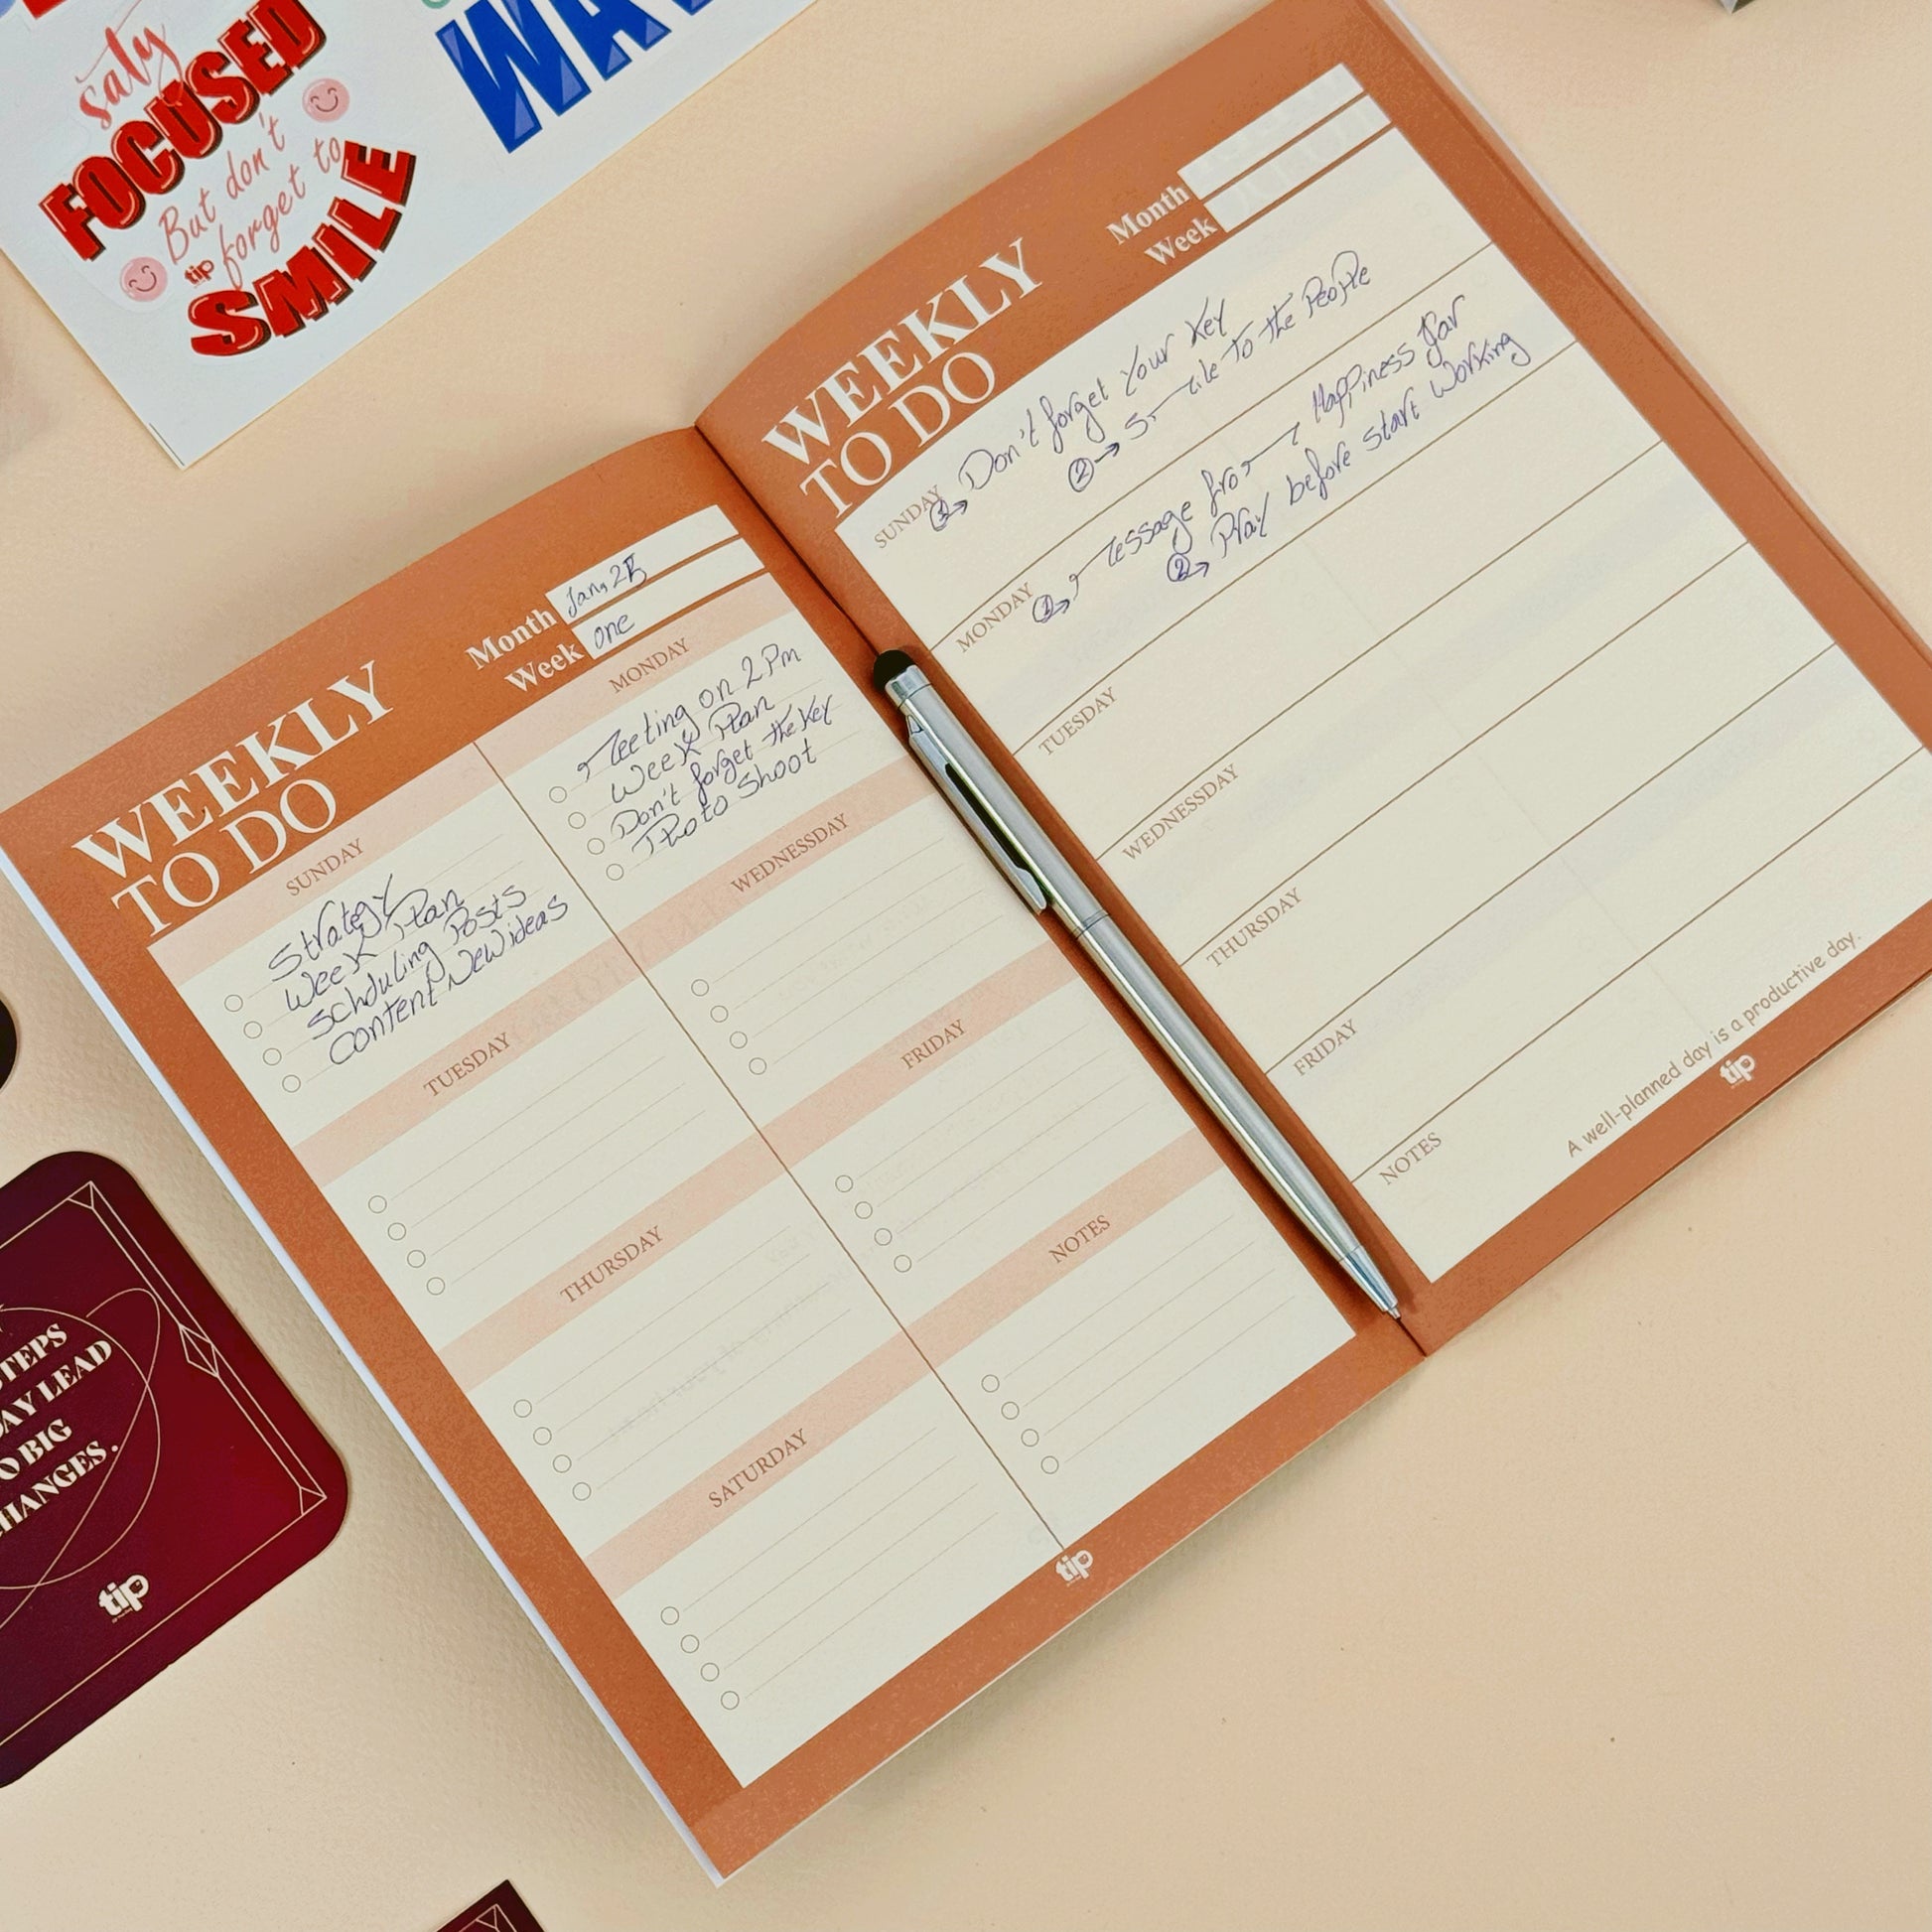 saty
FOCUSED
But don't
forget to
tip
SMILE
WEEKLY
TO DO
Month Jan, 25
Week one
SUNDAY
Strategy
Week Plan
Schduling Posts
Content New ideas
MONDAY
Meeting on 2 Pm
Week Plan
Don't forget the Key
Photo Shoot
TUESDAY
WEDNESDAY
THURSDAY
FRIDAY
SATURDAY
NOTES
tip
WEEKLY
TO DO
Month
Week
SUNDAY
1→ Don't forget Your Key
2→ Smile to the People
MONDAY
1→ Message from Happiness Jar
2→ Pray before start Working
TUESDAY
WEDNESDAY
THURSDAY
FRIDAY
NOTES
A well-planned day is a productive day.
tip
LEAD
BIG
tip